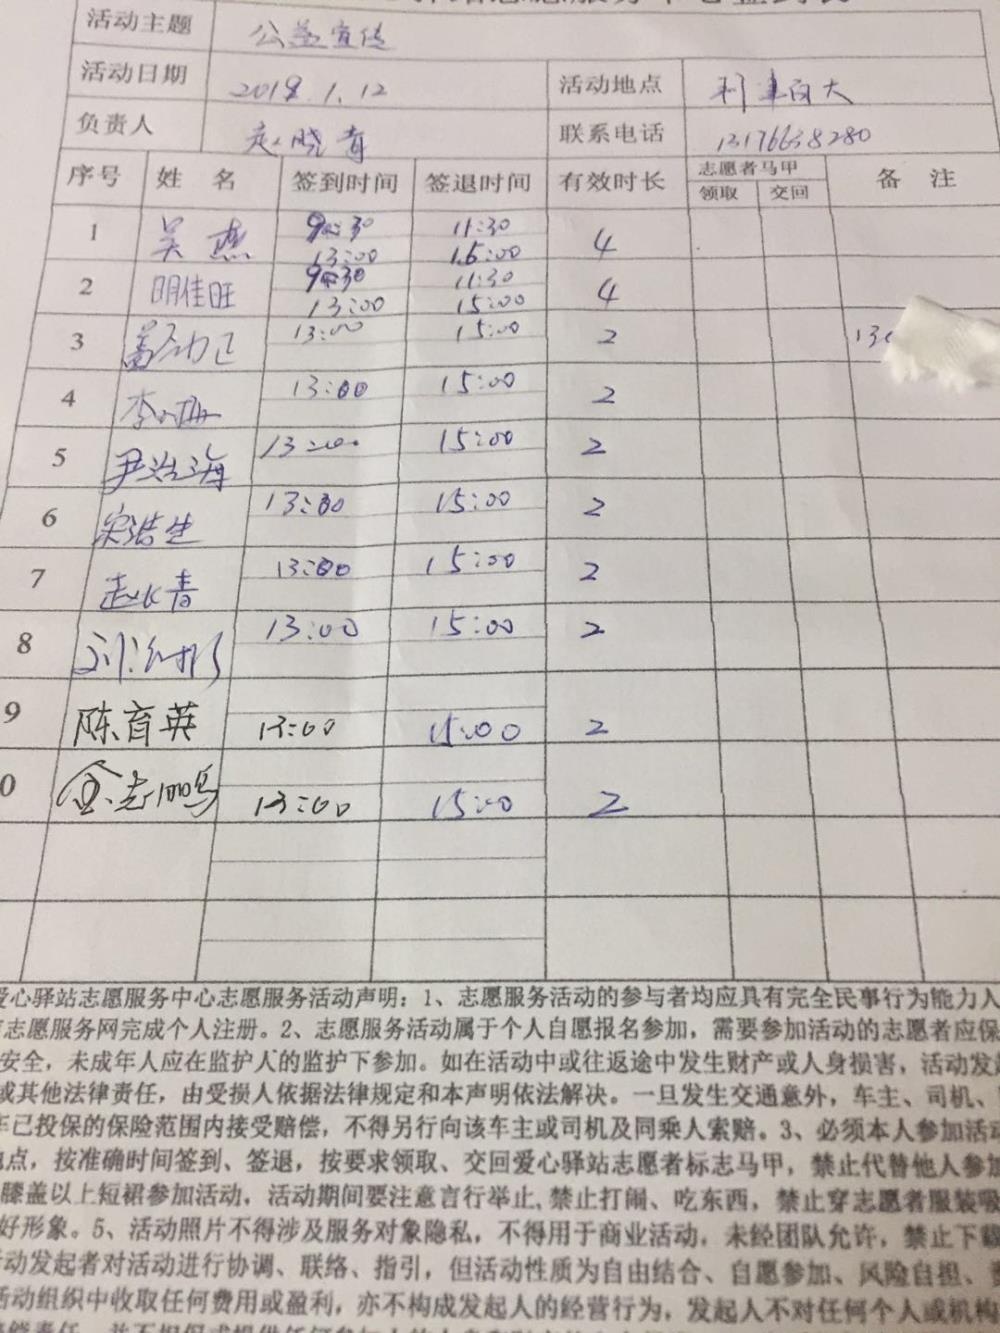 活动主题 公益宣传
活动日期 2018.1.12 活动地点
负责人 赵晓青 联系电话 13176638280
序号 姓 名 签到时间 签退时间 有效时长 志愿者马甲 备 注
领取 交回
1 吴燕 9:30 11:30 4
13:00 15:00
2 明佳旺 9:30 11:30 4
13:00 15:00
3 13:00 15:00 2
4 13:00 15:00 2
5 尹治海 13:00 15:00 2
6 宋浩生 13:00 15:00 2
7 赵长青 13:00 15:00 2
8 13:00 15:00 2
9 陈育英 13:00 15:00 2
0 金志鸣 13:00 15:00 2
爱心驿站志愿服务中心志愿服务活动声明：1、志愿服务活动的参与者均应具有完全民事行为能力人
志愿服务网完成个人注册。2、志愿服务活动属于个人自愿报名参加，需要参加活动的志愿者应保
安全，未成年人应在监护人的监护下参加。如在活动中或往返途中发生财产或人身损害，活动发
或其他法律责任，由受损人依据法律规定和本声明依法解决。一旦发生交通意外，车主、司机、
车已投保的保险范围内接受赔偿，不得另行向该车主或司机及同乘人索赔。3、必须本人参加活动
地点，按准确时间签到、签退，按要求领取、交回爱心驿站志愿者标志马甲，禁止代替他人参加
膝盖以上短裙参加活动，活动期间要注意言行举止、禁止打闹、吃东西，禁止穿志愿者服装吸
好形象。5、活动照片不得涉及服务对象隐私，不得用于商业活动，未经团队允许，禁止下载
动发起者对活动进行协调、联络、指引，但活动性质为自由结合、自愿参加、风险自担、
活动组织中收取任何费用或盈利，亦不构成发起人的经营行为，发起人不对任何个人或机构